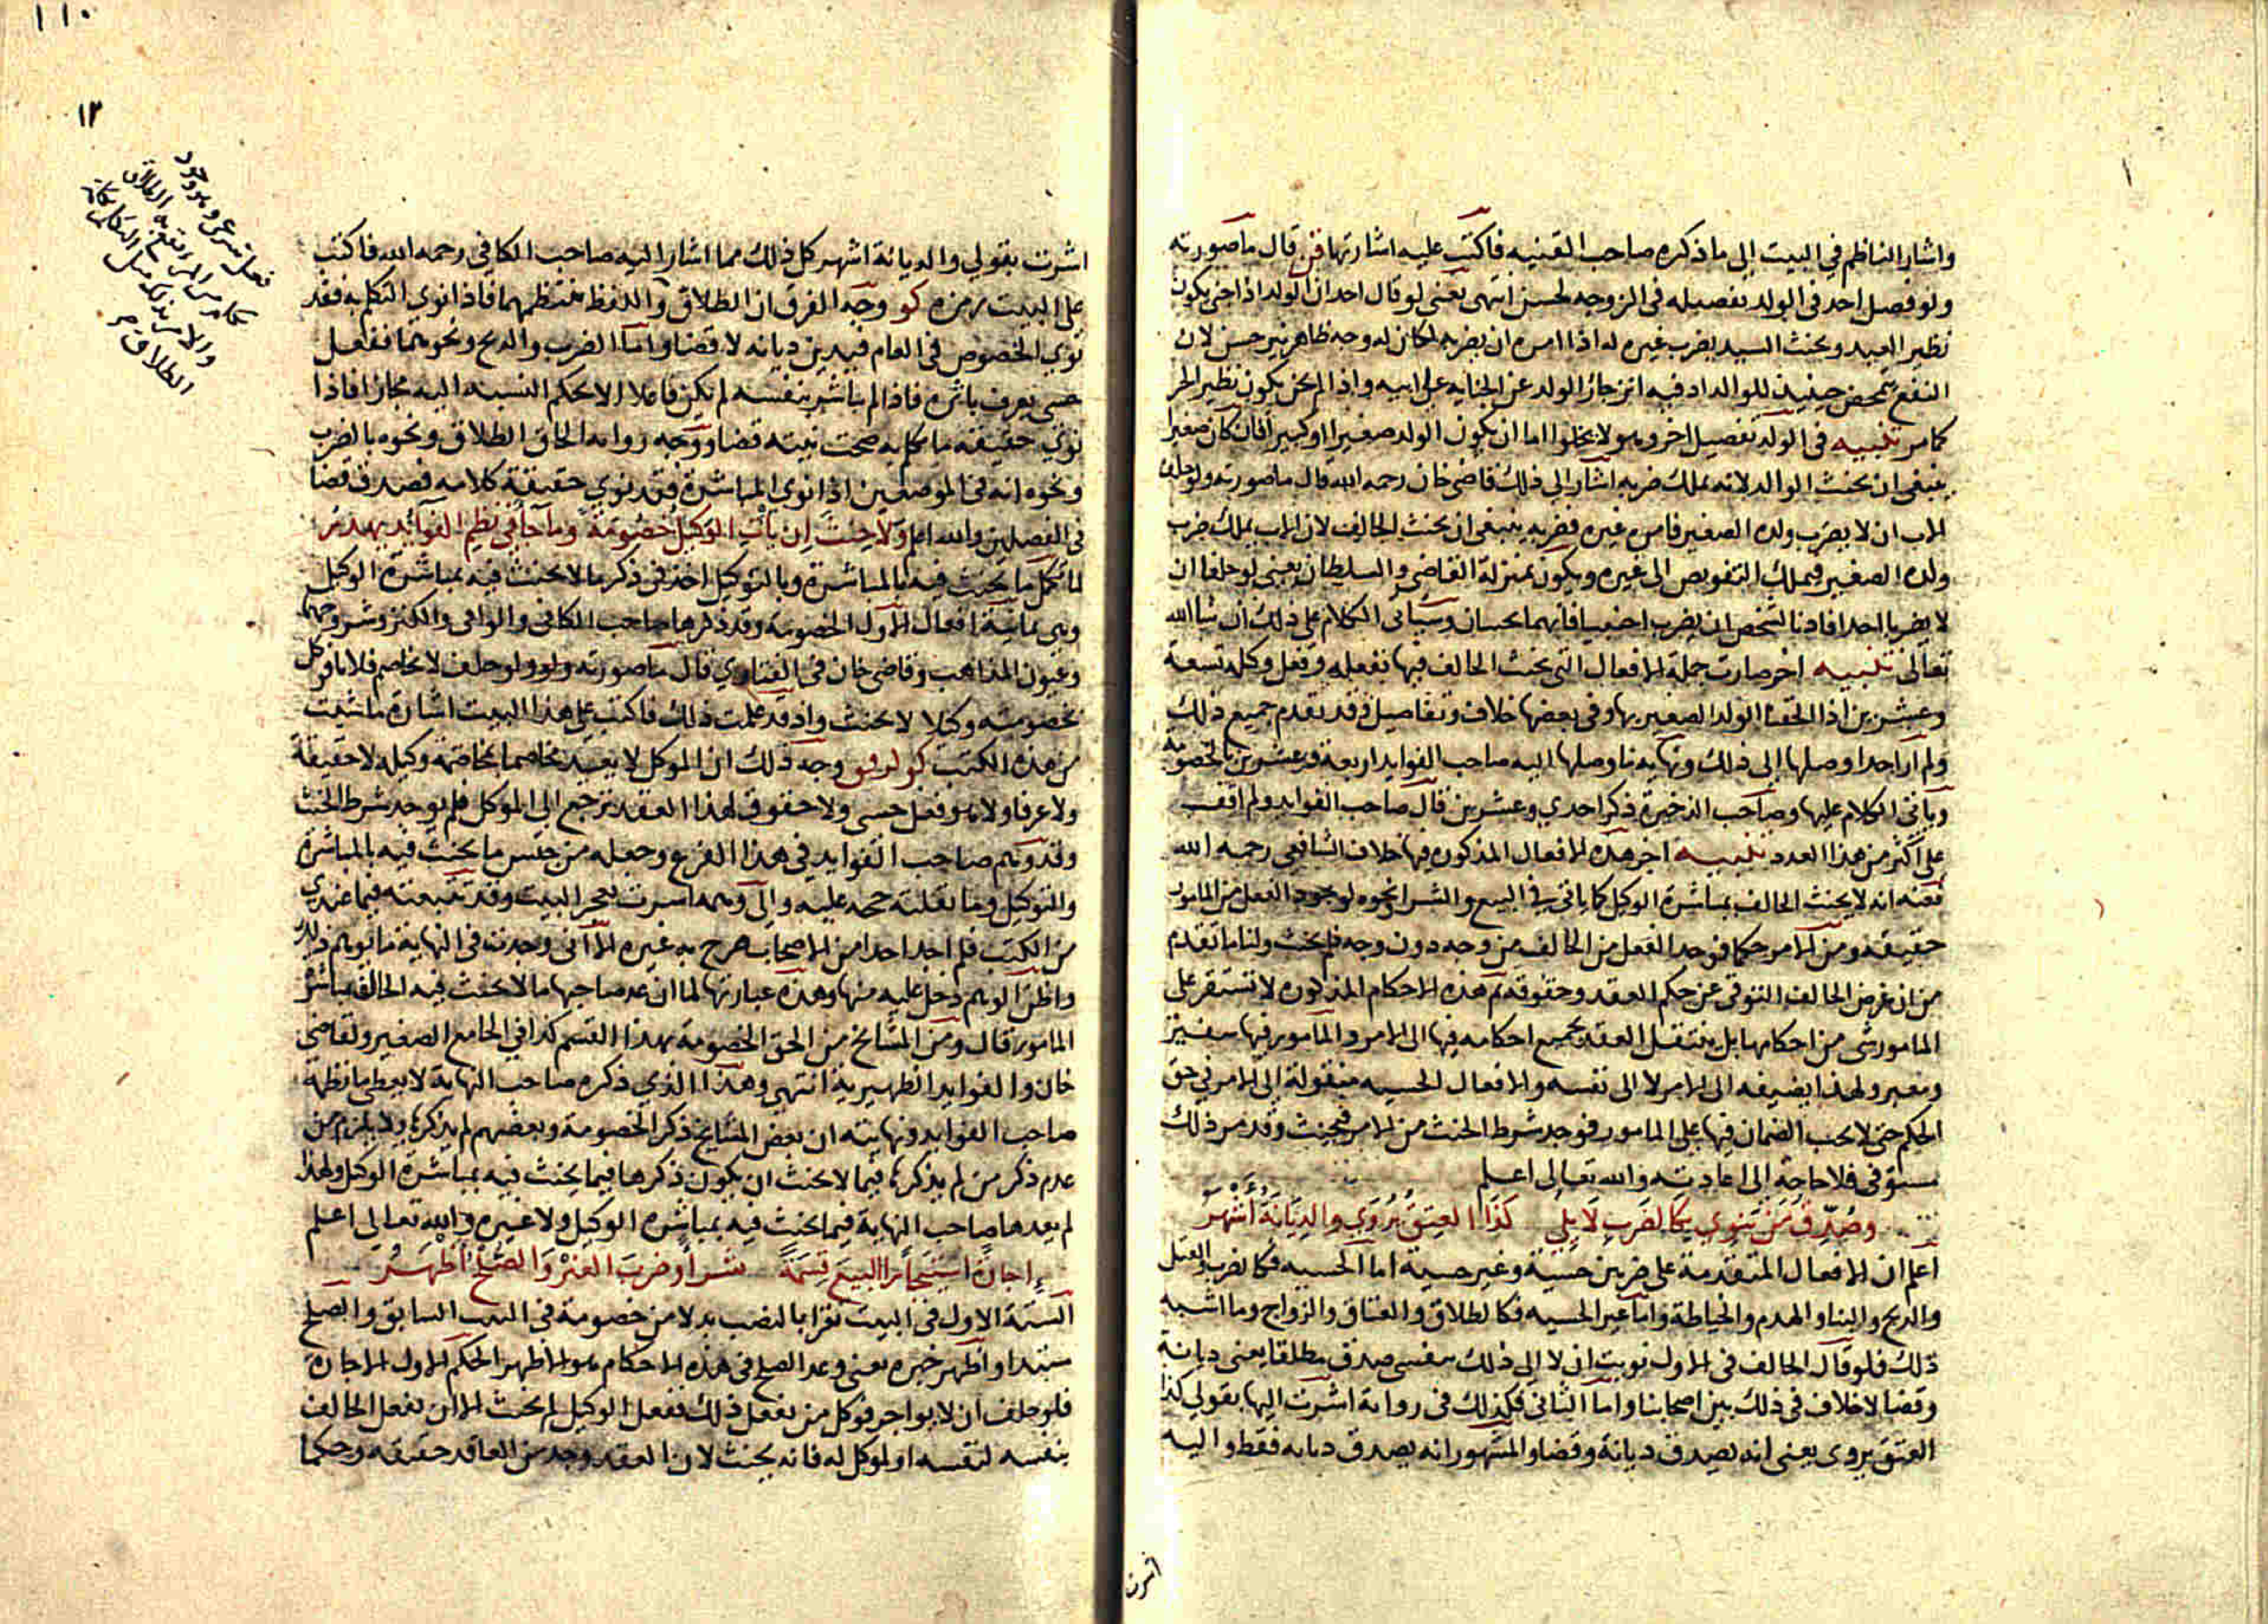 واشار الناظم في البيت الى ما ذكره صاحب القنيه فاكتب عليه اشارتها قن قال ما صورته
ولو فصل احد في الولد تفصيله في الزوجه لحسن انتهى يعنى لو قال احد ان الولد اذا جنى يكون
نظير العبد ويحنث السيد بضرب غيره له اذا امره ان يضربه لكان له وجه ظاهر نير حسن لان
النفع تمحض حينيذ للوالد اذ فيه انزجار الولد عن الجنايه على ابيه واذا لم يجن يكون نظير الحر
كما مر تنبيه في الولد تفصيل اخر وهو لا يخلوا اما ان يكون الولد صغيرا او كبيرا فان كان صغيرا
ينبغى ان يحنث الوالد لانه يملك ضربه اشار الى ذلك قاضى خان رحمه الله قال ما صورته ولو حلف
الاب ان لا يضرب ولده الصغير فامر غيره فضربه ينبغى ان يحنث الحالف لان الاب يملك ضرب
ولده الصغير فيملك التفويض الى غيره ويكون بمنزلة القاضى والسلطان يعنى لو حلفا ان
لا يضربا احدا فاذنا لشخص ان يضرب اجنبيا فانهما يحنثان وسياتى الكلام على ذلك ان شا الله
تعالى تنبيه اخر صارت جملة الافعال التى يحنث الحالف فيها بفعله وفعل وكيله تسعة
وعشرين اذا الحقنا الولد الصغير بها وفى بعضها خلاف وتفاصيل قد تقدم جميع ذلك
ولم ار احدا وصلها الى ذلك ونهاية ما وصلها اليه صاحب الفوايد اربعة وعشرين بالخصومة
وياتى الكلام عليها وصاحب الذخيرة ذكر احدي وعشرين قال صاحب الفوايد ولم اقف
على اكثر من هذا العدد تنبيه اخر هذه الافعال المذكوره فيها خلاف الشافعى رحمه الله
فعنه انه لا يحنث الحالف بمباشرة الوكيل كما ياتى في البيع والشرا ونحوه لوجود الفعل من المامور
حقيقة ومن الامر حكما فوجد الفعل من الحالف من وجه دون وجه فلم يحنث ولنا ما تقدم
من ان غرض الحالف التوقى عن حكم العقد وحقوقه ثم هذه الاحكام المذكوره لا تستقر على
المامور شى من احكامها بل ينتقل العقد بجميع احكامه فيها الى الامر والمامور فيها سفير
ومعبر ولهذا يضيفه الى الامر لا الى نفسه والافعال الحسيه منقولة الى الامر في حق
الحكم حتى لا يجب الضمان فيها على المامور فوجد شرط الحنث من الامر فيحنث وقد مر ذلك
مستوفى فلا حاجة الى اعادته والله تعالى اعلم
وصدق من ينوي بكالضرب لا يلي كذا العتق يروي والديانة اشهر
اعلم ان الافعال المتقدمة على ضربين حسية وغير حسية اما الحسيه فكالضرب والقتل
والذبح والبنا والهدم والخياطة واما غير الحسيه فكالطلاق والعتاق والزواج وما اشبه
ذلك فلو قال الحالف في الاول نويت ان لا الى ذلك بنفسى صدق مطلقا يعنى ديانة
وقضا لا خلاف في ذلك بين اصحابنا واما الثانى فكذلك في رواية اشرت اليها بقولي كذا
العتق يروى يعنى انه يصدق ديانة وقضا والمشهور انه يصدق ديانه فقط واليه
اشرت
١١٠
١٢
اشرت بقولي والديانة اشهر كل ذلك مما اشار اليه صاحب الكافى رحمه الله فاكتب
على البيت رمزه كو وجه الفرق ان الطلاق واللفظ ينتظمهما فاذا نوى التكلم به فقد
نوى الخصوص في العام فيدين ديانه لا قضا واما الضرب والذبح ونحوهما ففعل
حسى يعرف باثره فاذا لم يباشر بنفسه لم يكن فاعلا الا بحكم النسبة اليه مجازا فاذا
نوي حقيقة ما تكلم به صحت نيته قضا ووجه رواية الحاق الطلاق ونحوه بالضرب
ونحوه انه في الموضعين اذا نوى المباشرة فقد نوي حقيقة كلامه فصدق قضا
في الفصلين والله اعلم ولا حنث ان يات الوكيل خصومة وما جا في نظم الفوايد يهدر
لما كمل ما يحنث فيه بالمباشرة وبالتوكيل اخذ في ذكر ما لا يحنث فيه بمباشرة الوكيل
وهى ثمانية افعال الاول الخصومة وقد ذكرها صاحب الكافى والوافى والكنز وشروحهما
وعيون المذاهب وقاضى خان في الفتاوي قال ما صورته ولو حلف لا يخاصم فلانا فوكل
بخصومته وكيلا لا يحنث واذ قد علمت ذلك فاكتب على هذا البيت اشارة ما شيت
من هذه الكتب وجه ذلك ان الموكل لا يعد مخاصما بمخاصمة وكيله لا حقيقة
ولا عرفا ولا هو فعل حسى ولا حقوق لهذا العقد ترجع الى الموكل فلم يوجد شرط الحنث
وقد وهم صاحب الفوايد في هذا الفرع وجعله من جنس ما يحنث فيه بالمباشرة
والتوكيل وما نقلته حجه عليه والى وهمه اشرت بعجز البيت وقد تتبعته فيما عندي
من الكتب فلم اجد احدا من الاصحاب صرح به غيره الا انى وجدت في النهاية ما يوهم ذلك
واظن الوهم دخل عليه منها وهذه عبارتها لما ان عد صاحبها ما لا يحنث فيه الحالف بمباشرة
المامور قال ومن المشايخ من الحق الخصومة بهذا القسم كذا في الجامع الصغير ولقاضى
خان والفوايد الظهيرية انتهى وهذا الذي ذكره صاحب النهاية لا يعطى ما نظمه
صاحب الفوايد ونهايته ان بعض المشايخ ذكر الخصومة وبعضهم لم يذكرها ولا يلزم من
عدم ذكر من لم يذكرها فيما لا يحنث ان يكون ذكرها فيما يحنث فيه بمباشرة الوكيل ولهذا
لم يعدها صاحب النهاية فيما يحنث فيه بمباشرة الوكيل ولا غيره والله تعالى اعلم
اجارة استيجارا البيع قسمة شرا وضرب العتر والصلح اظهر
الستة الاول في البيت تقرا بالنصب بدلا من خصومة في البيت السابق والصلح
مبتدا واظهر خبره يعنى وعد الصلح في هذه الاحكام هو الاظهر الحكم الاول الاجارة
فلو حلف ان لا يواجر فوكل من يفعل ذلك ففعل الوكيل لم يحنث الا ان يفعل الحالف
بنفسه لنفسه او لموكل له فانه يحنث لان العقد وجد من العاقد حقيقة وحكما
فعل شرعى وهو وجود
والامر بذلك مثل التكلم
الطلاق